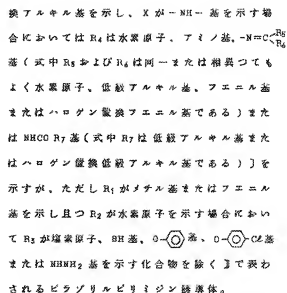 換アルキル基を示し、Xが-NH-基を示す場
合においてはR4は水素原子、アミノ基、-N=C<R5 R6
基(式中R5およびR6は同一または相異つても
よく水素原子、低級アルキル基、フエニル基
またはハロゲン置換フエニル基である)また
はNHCOR7基(式中R7は低級アルキル基また
はハロゲン置換低級アルキル基である)〕を
示すが、ただしR1がメチル基またはフエニル
基を示し且つR2が水素原子を示す場合におい
てR3が塩素原子、SH基、O-基、O-Cl基
またはNHNH2基を示す化合物を除く〕で表わ
されるピラゾリルピリミジン誘導体。